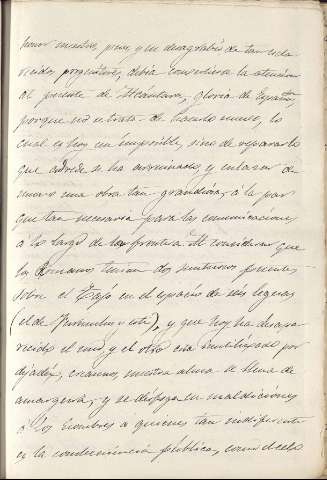 honor nuestro, pues, y en desagravio de tan escla-
recidos progenitores, debía convertirse la atención
al puente de Alcántara, gloria de España,
porque no se trata de hacerlo nuevo, lo
cual es hoy un imposible, sino de repararlo
que adrede se ha arruinado, y enlazar de
nuevo una obra tan grandiosa, á la par
que tan necesaria para las comunicaciones
á lo largo de la frontera. Al considerar que
los Romanos tenían dos suntuosos puentes
sobre el Tajo en el espacio de seis leguas
(el de y este), y que hoy ha desapa-
recido el uno y el otro está inutilizado por
dejadez, creamos, nuestra alma se llena de
amargura, y se desfoga en maldiciones
á los hombres á quienes tan indiferente
es la conveniencia pública, como el celo